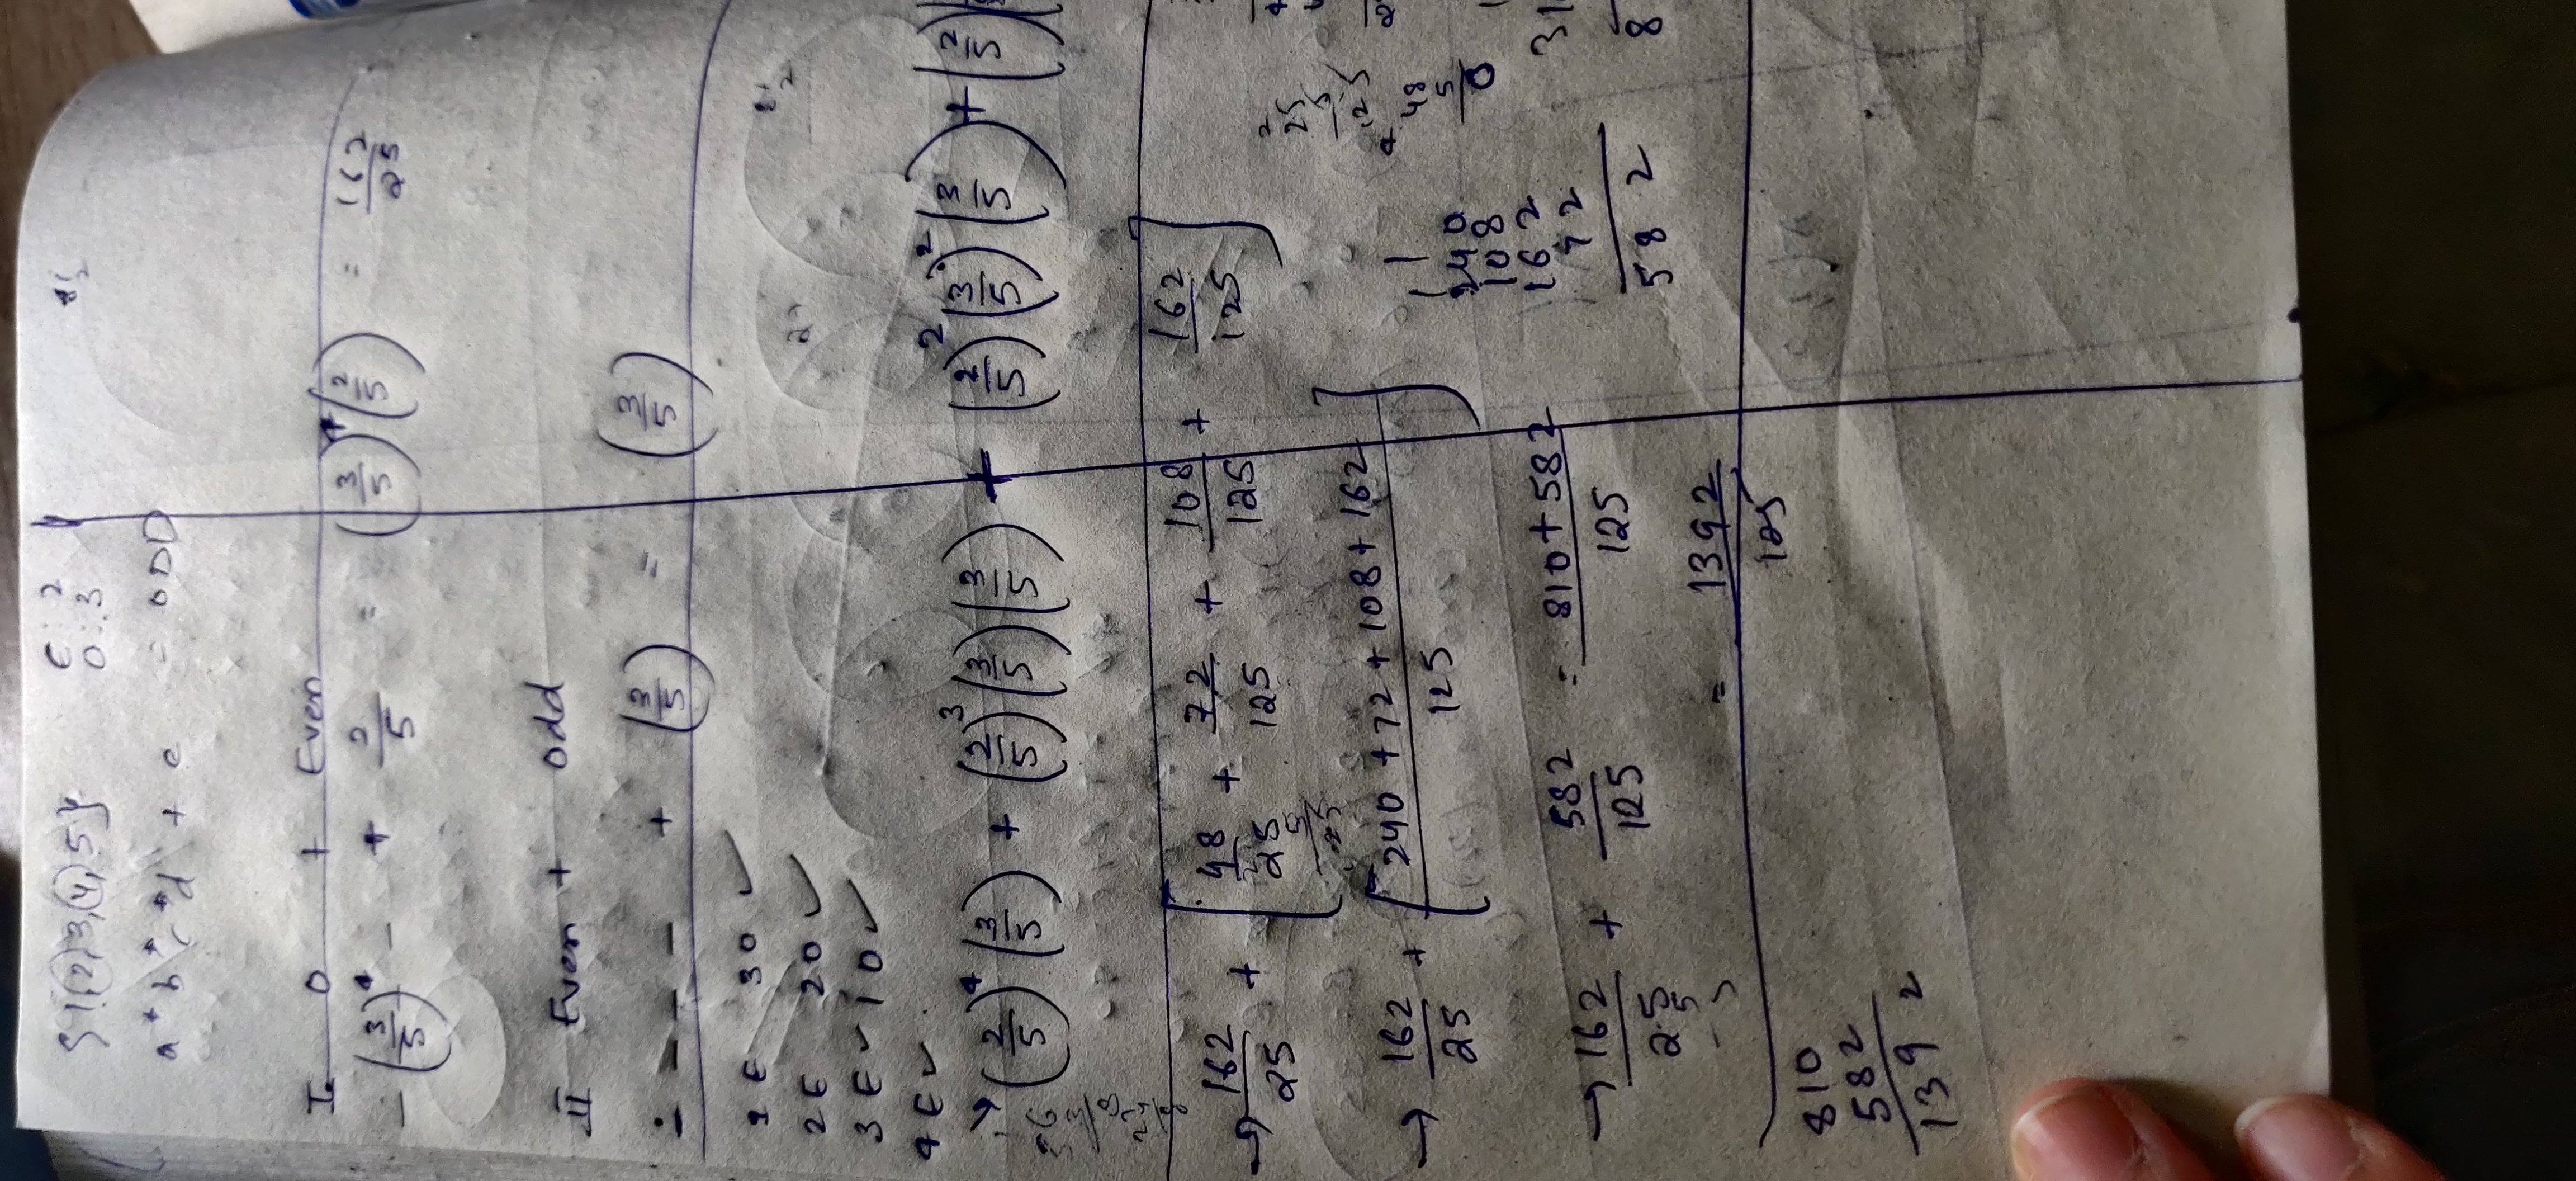 {1,(2),3,(4),5} E: 2
O: 3
a * b * c * d + e = ODD
I. O + Even
(3/5)^4 + 2/5 = (3/5)^4 (2/5) = 162/25
II Even + odd
+ (3/5) = (3/5)
1E 3O ✓
2E 2O ✓
3E 1O ✓
4E ✓
→ (2/5)^4 (3/5) + (2/5)^3 (3/5) (3/5) + (2/5)^2 (3/5)^2 (3/5) + (2/5)
→ 162/25 + [48/25 + 72/125 + 108/125 + 162/125]
→ 162/25 + [240 + 72 + 108 + 162 / 125]
→ 162/25 + 582/125 = 810 + 582 / 125
= 1392/125
240
108
162
72
582
48
5
0
810
582
1392